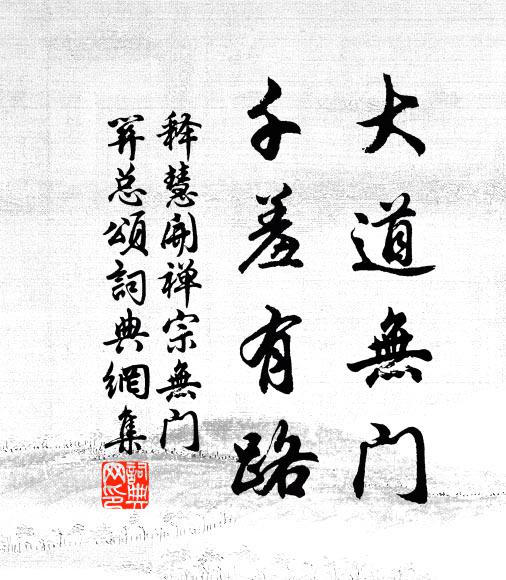 大道無门
千差有路
释慧開禅宗無门
關总頌詞典網集
詞典网印